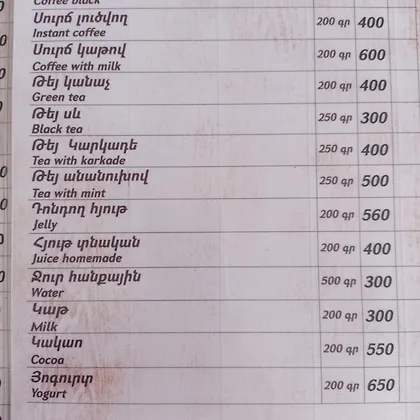 Coffee black
Սուրճ լուծվող 200 գր 400
Instant coffee
Սուրճ կաթով 200 գր 600
Coffee with milk
Թեյ կանաչ 200 գր 400
Green tea
Թեյ սև 250 գր 300
Black tea
Թեյ Կարկադե 250 գր 400
Tea with karkade
Թեյ անանուխով 250 գր 500
Tea with mint
Դոնդող հյութ 200 գր 560
Jelly
Հյութ տնական 200 գր 400
Juice homemade
Ջուր հանքային 500 գր 300
Water
Կաթ 200 գր 300
Milk
Կակաո 200 գր 550
Cocoa
Յոգուրտ 200 գր 650
Yogurt